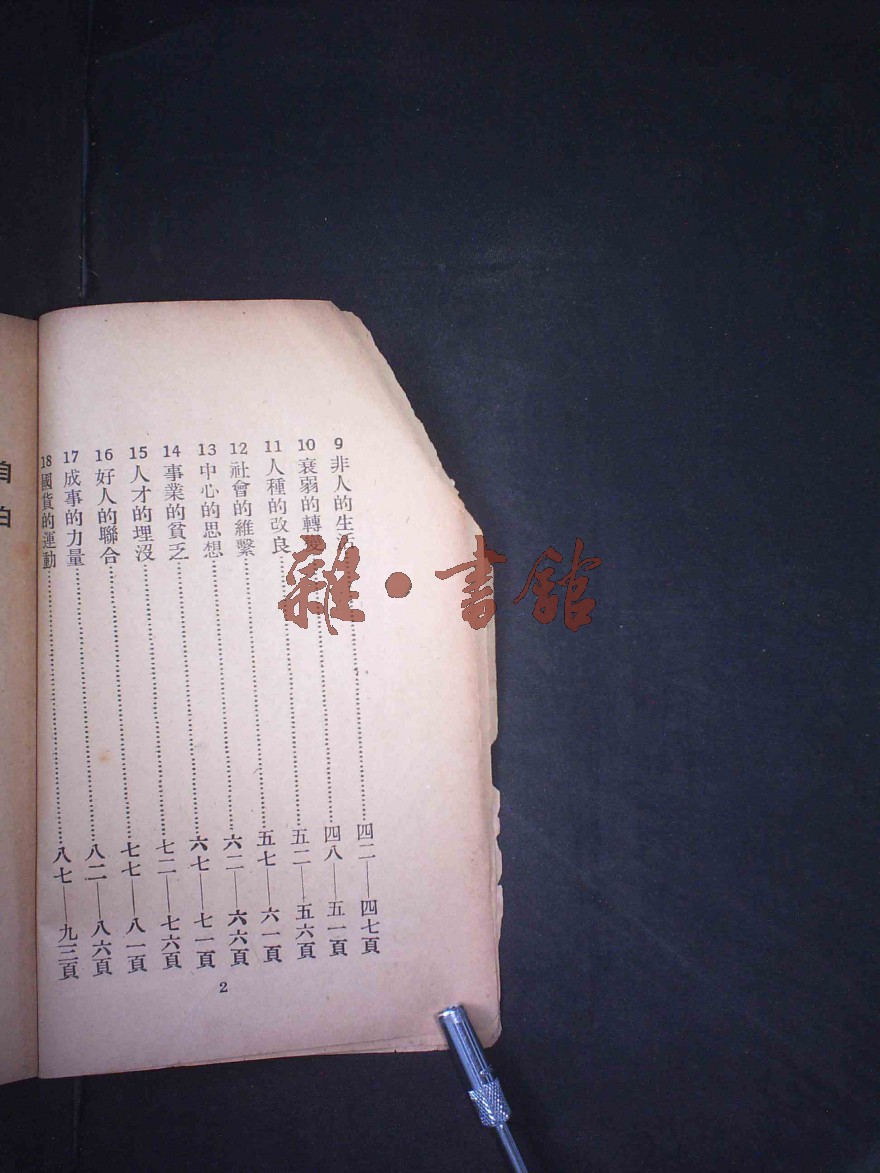 9 非人的生活……四二——四七頁
10 衰弱的轉變……四八——五一頁
11 人種的改良……五二——五六頁
12 社會的維繫……五七——六一頁
13 中心的思想……六二——六六頁
14 事業的貧乏……六七——七一頁
15 人才的埋沒……七二——七六頁
16 好人的聯合……七七——八一頁
17 成事的力量……八二——八六頁
18 國貨的運動……八七——九三頁
2
自白
雜·書館